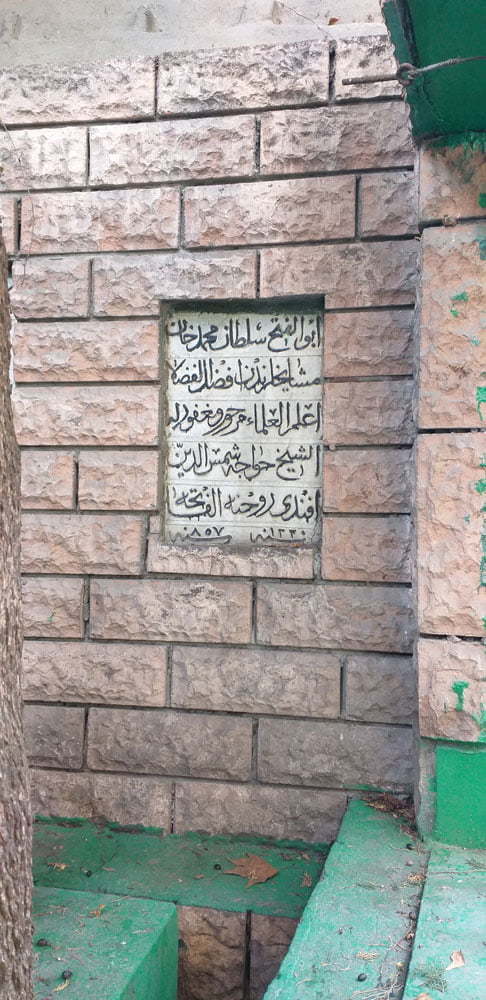 ابو الفتح سلطان محمد خان
مشايخلرندن افضل الفضلا
اعلم العلماء مرحوم و مغفور له
الشيخ خواجه شمس الدين
افندى روحنه الفاتحه
سنه ٨٥٧ سنه ١٣٣٠